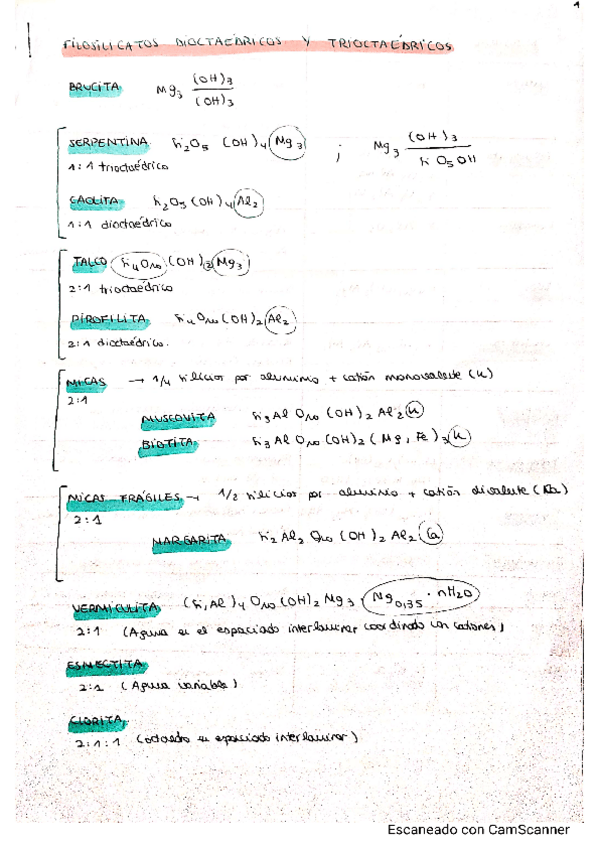 1
FILOSILICATOS DIOCTAÉDRICOS Y TRIOCTAÉDRICOS
BRUCITA Mg3 (OH)3
(OH)3
SERPENTINA Si2O5 (OH)4 Mg3 ; Mg3 (OH)3
Si O5 OH
1:1 trioctaédrico
CAOLITA Si2O5 (OH)4 Al2
1:1 dioctaédrico
TALCO Si4O10 (OH)2 Mg3
2:1 trioctaédrico
PIROFILITA Si4O10 (OH)2 Al2
2:1 dioctaédrico.
MICAS → 1/4 silicios por aluminio + catión monovalente (K)
2:1
MUSCOVITA Si3 Al O10 (OH)2 Al2 K
BIOTITA Si3 Al O10 (OH)2 (Mg, Fe)3 K
MICAS FRÁGILES → 1/2 silicios por aluminio + catión divalente (Ca)
2:1
MARGARITA Si2 Al2 O10 (OH)2 Al2 Ca
VERMICULITA (Si, Al)4 O10 (OH)2 Mg3 · Mg0,35 · nH2O
2:1 (Agua en el espaciado interlaminar coordinado con cationes)
ESMECTITA
2:1 (Agua variable)
CLORITA
2:1:1 (octaedro en espaciado interlaminar)
Escaneado con CamScanner